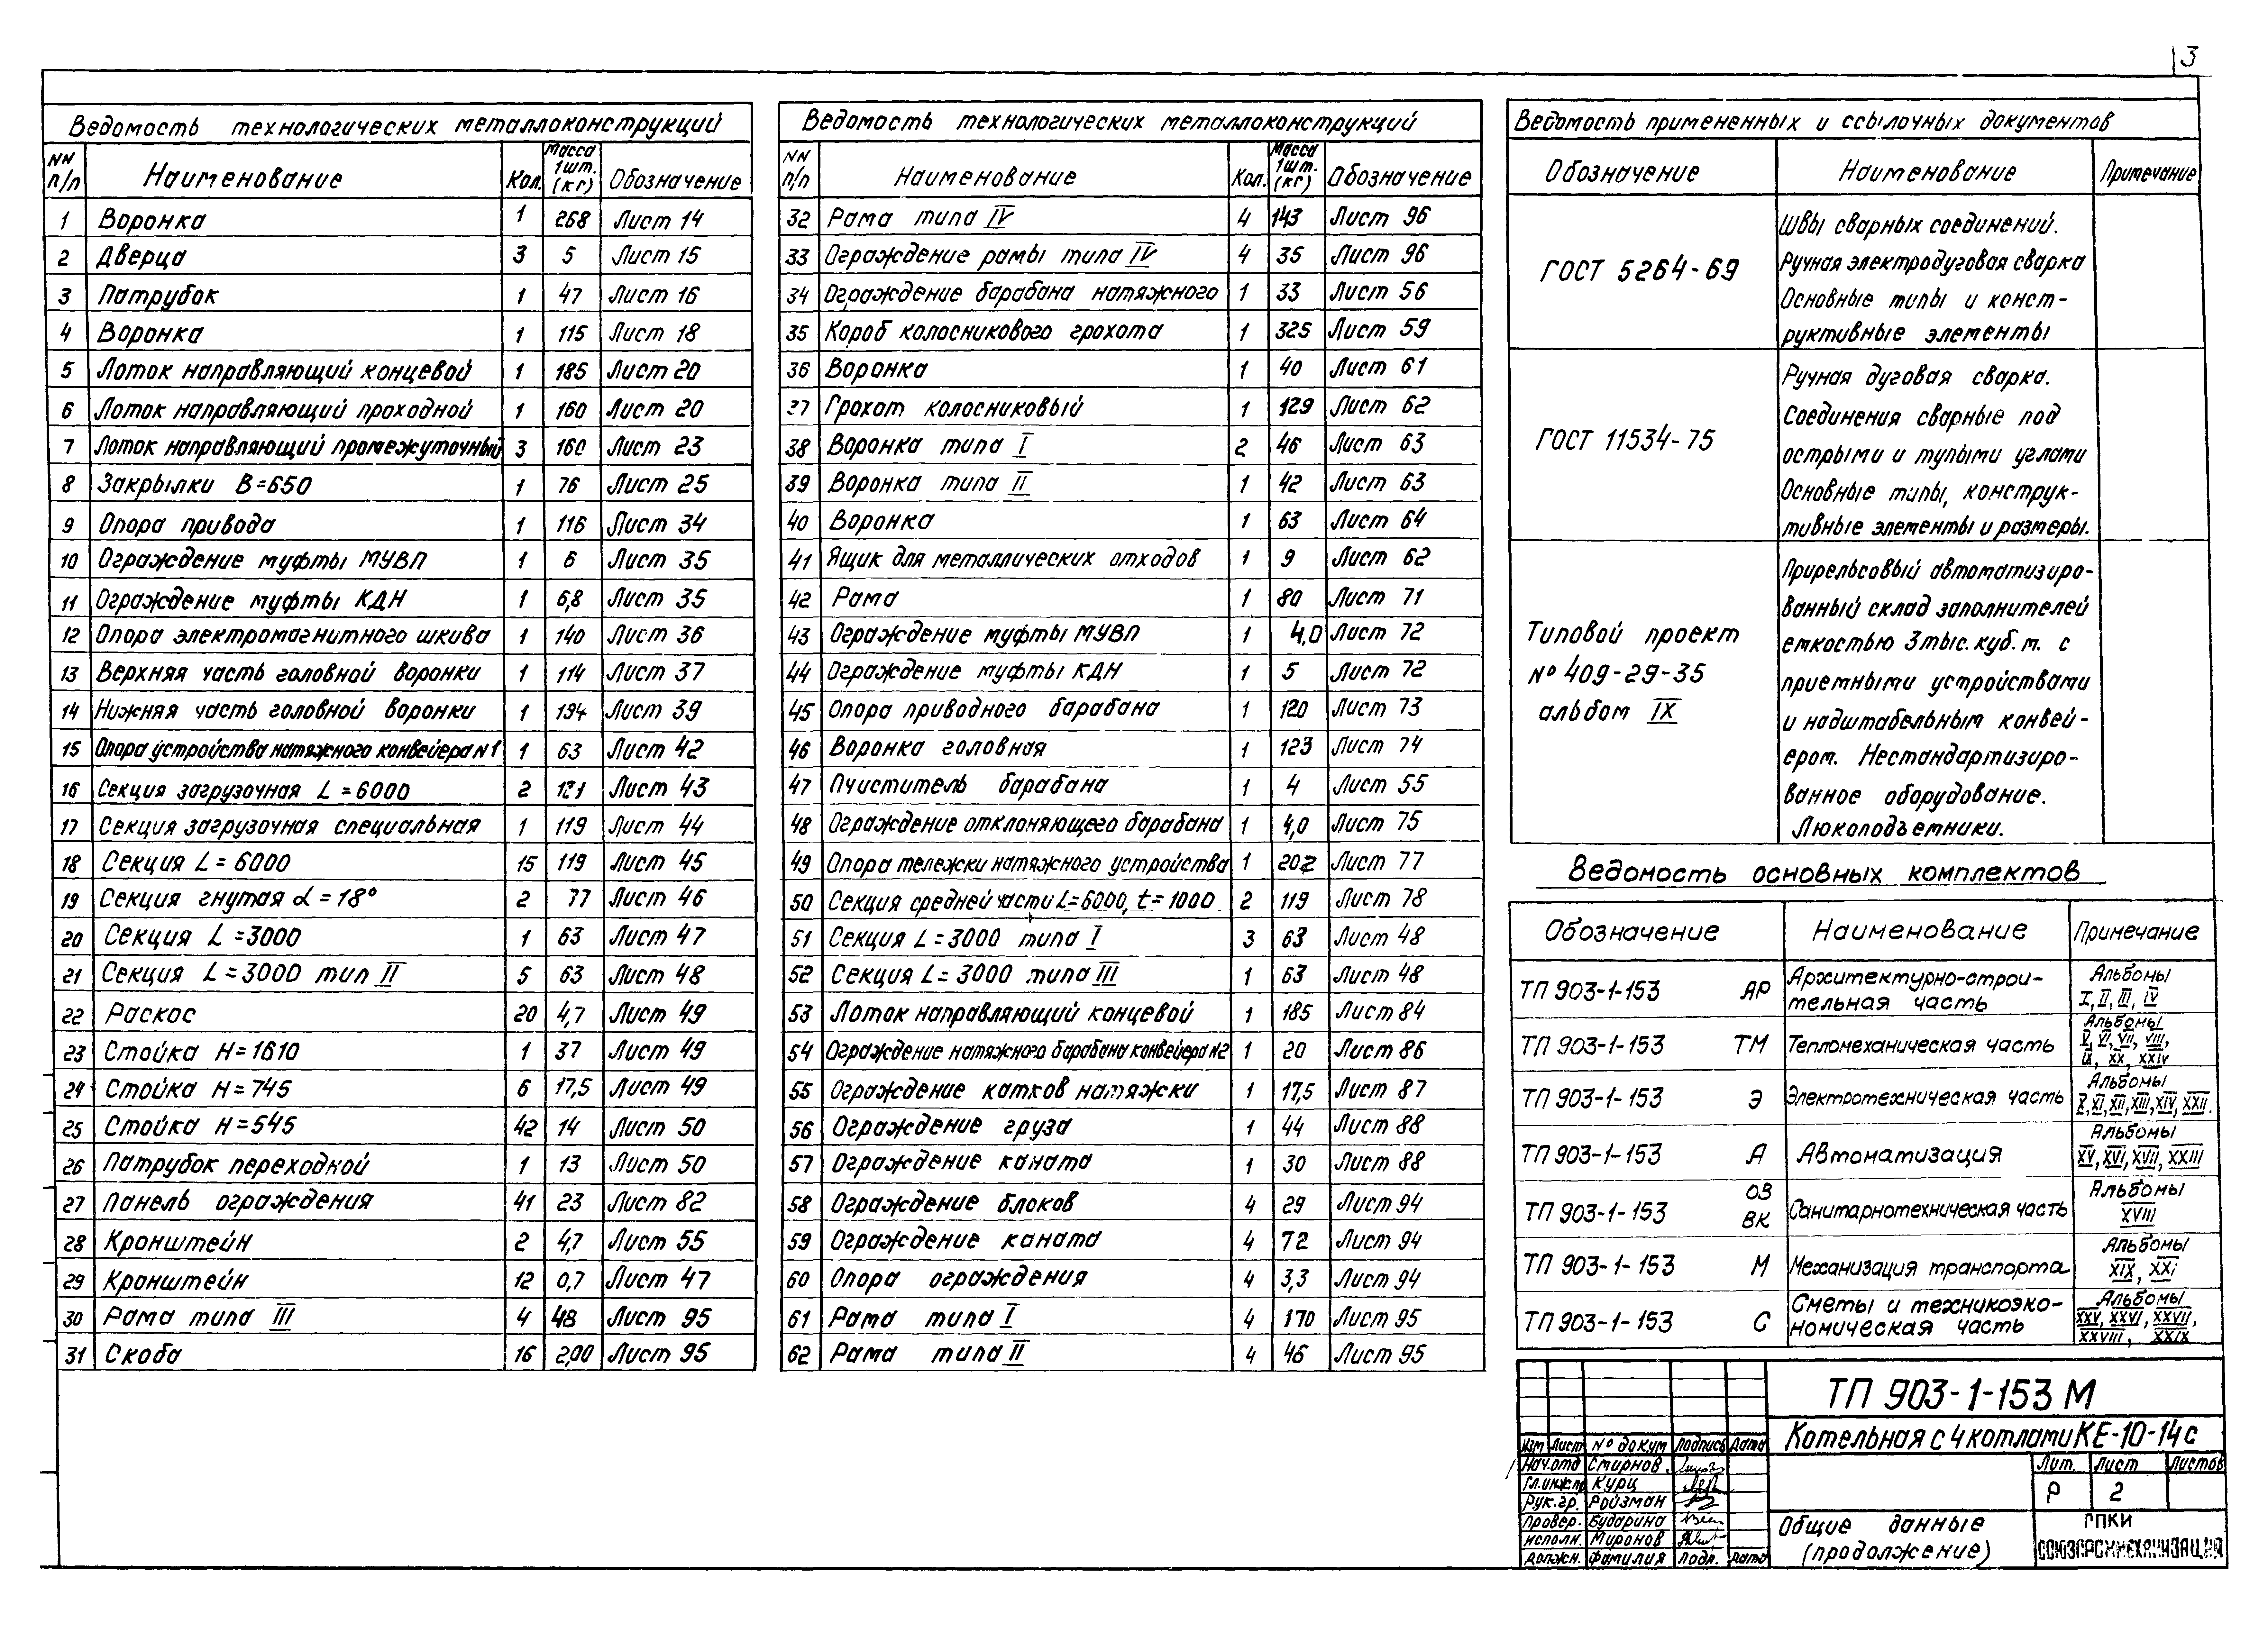 3
Ведомость технологических металлоконструкций
NN п/п Наименование Кол. Масса 1шт. (кг) Обозначение
1 Воронка 1 268 Лист 14
2 Дверца 3 5 Лист 15
3 Патрубок 1 47 Лист 16
4 Воронка 1 115 Лист 18
5 Лоток направляющий концевой 1 185 Лист 20
6 Лоток направляющий проходной 1 160 Лист 20
7 Лоток направляющий промежуточный 3 160 Лист 23
8 Закрылки В=650 1 76 Лист 25
9 Опора привода 1 116 Лист 34
10 Ограждение муфты МУВП 1 6 Лист 35
11 Ограждение муфты КДН 1 6,8 Лист 35
12 Опора электромагнитного шкива 1 140 Лист 36
13 Верхняя часть головной воронки 1 114 Лист 37
14 Нижняя часть головной воронки 1 194 Лист 39
15 Опора устройства натяжного конвейера N1 1 63 Лист 42
16 Секция загрузочная L=6000 2 131 Лист 43
17 Секция загрузочная специальная 1 119 Лист 44
18 Секция L=6000 15 119 Лист 45
19 Секция гнутая α=18° 2 77 Лист 46
20 Секция L=3000 1 63 Лист 47
21 Секция L=3000 тип II 5 63 Лист 48
22 Раскос 20 4,7 Лист 49
23 Стойка Н=1610 1 37 Лист 49
24 Стойка Н=745 6 17,5 Лист 49
25 Стойка Н=545 42 14 Лист 50
26 Патрубок переходной 1 13 Лист 50
27 Панель ограждения 41 23 Лист 82
28 Кронштейн 2 4,7 Лист 55
29 Кронштейн 12 0,7 Лист 47
30 Рама типа III 4 48 Лист 95
31 Скоба 16 2,00 Лист 95
Ведомость технологических металлоконструкций
NN п/п Наименование Кол. Масса 1шт. (кг) Обозначение
32 Рама типа IV 4 143 Лист 96
33 Ограждение рамы типа IV 4 35 Лист 96
34 Ограждение барабана натяжного 1 33 Лист 56
35 Короб колосникового грохота 1 325 Лист 59
36 Воронка 1 40 Лист 61
37 Грохот колосниковый 1 129 Лист 62
38 Воронка типа I 2 46 Лист 63
39 Воронка типа II 1 42 Лист 63
40 Воронка 1 63 Лист 64
41 Ящик для металлических отходов 1 9 Лист 62
42 Рама 1 80 Лист 71
43 Ограждение муфты МУВП 1 4,0 Лист 72
44 Ограждение муфты КДН 1 5 Лист 72
45 Опора приводного барабана 1 120 Лист 73
46 Воронка головная 1 123 Лист 74
47 Очиститель барабана 1 4 Лист 55
48 Ограждение отклоняющего барабана 1 4,0 Лист 75
49 Опора тележки натяжного устройства 1 202 Лист 77
50 Секция средней части L=6000, t=1000 2 119 Лист 78
51 Секция L=3000 типа I 3 63 Лист 48
52 Секция L=3000 типа III 1 63 Лист 48
53 Лоток направляющий концевой 1 185 Лист 84
54 Ограждение натяжного барабана конвейера N2 1 20 Лист 86
55 Ограждение катков натяжки 1 17,5 Лист 87
56 Ограждение груза 1 44 Лист 88
57 Ограждение каната 1 30 Лист 88
58 Ограждение блоков 4 29 Лист 94
59 Ограждение каната 4 72 Лист 94
60 Опора ограждения 4 3,3 Лист 94
61 Рама типа I 4 170 Лист 95
62 Рама типа II 4 46 Лист 95
Ведомость примененных и ссылочных документов
Обозначение Наименование Примечание
ГОСТ 5264-69
Швы сварных соединений.
Ручная электродуговая сварка
Основные типы и конст-
руктивные элементы
ГОСТ 11534-75
Ручная дуговая сварка.
Соединения сварные под
острыми и тупыми углами
Основные типы, конструк-
тивные элементы и размеры.
Типовой проект
№ 409-29-35
альбом IX
Прирельсовый автоматизиро-
ванный склад заполнителей
емкостью 3 тыс. куб. м. с
приемными устройствами
и надштабельным конвей-
ером. Нестандартизиро-
ванное оборудование.
Люкоподъемники.
Ведомость основных комплектов
Обозначение Наименование Примечание
ТП 903-1-153 АР Архитектурно-строи-
тельная часть
Альбомы
I, II, III, IV
ТП 903-1-153 ТМ Тепломеханическая часть
Альбомы
V, VI, VII, VIII,
IX, XX, XXIV
ТП 903-1-153 Э Электротехническая часть
Альбомы
X, XI, XII, XIII, XIV, XXII.
ТП 903-1-153 А Автоматизация
Альбомы
XV, XVI, XVII, XXIII
ТП 903-1-153 ОВ
ВК
Санитарнотехническая часть
Альбомы
XVIII
ТП 903-1-153 М Механизация транспорта
Альбомы
XIX, XXI
ТП 903-1-153 С Сметы и техникоэко-
номическая часть
Альбомы
XXV, XXVI, XXVII,
XXVIII, XXIX
ТП 903-1-153 М
Котельная с 4 котлами КЕ-10-14с
Изм Лист № докум Подпись Дата
Нач.отд Смирнов
Гл.инж.пр Курц
Рук.гр. Ройзман
Провер. Бударина
Исполн. Миронов
Должн. Фамилия Подп. Дата
Лит. Лист Листов
Р 2
Общие данные
(продолжение)
ГПКИ